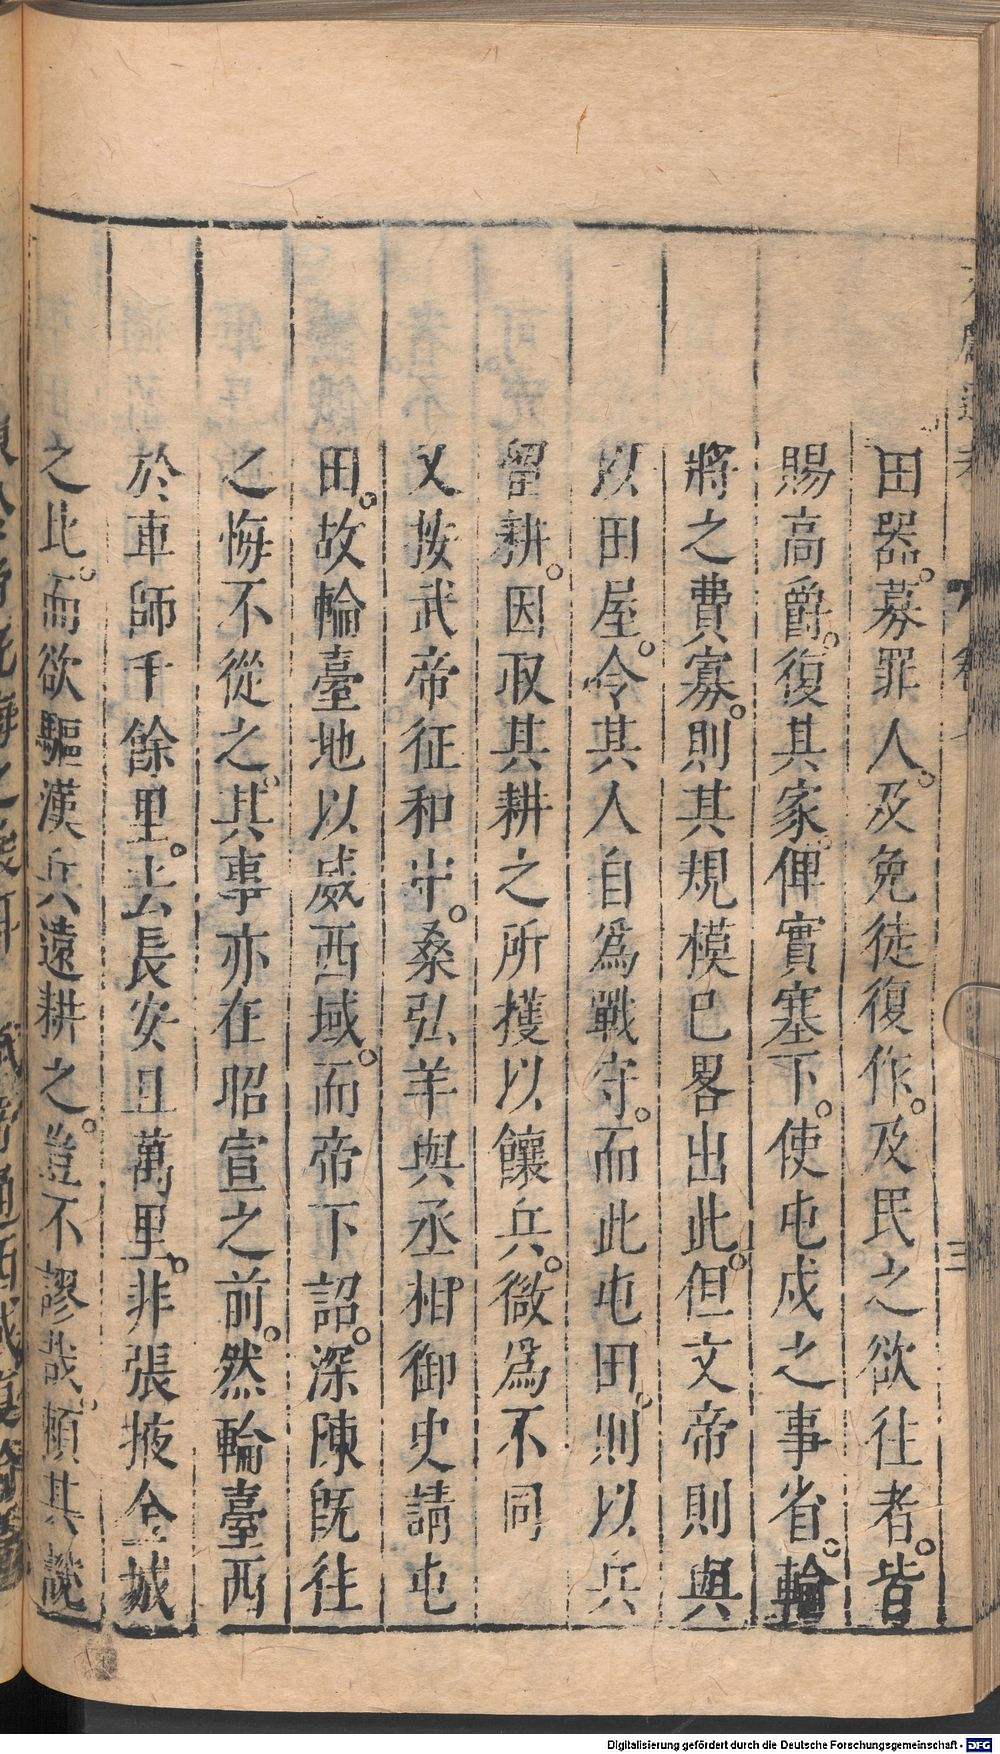 田器。募罪人。及免徒復作。及民之欲往者。皆
賜高爵。復其家俾實塞下。使屯戍之事省。輸
將之費寡。則其規模已畧出此。但文帝則與
以田屋。令其人自爲戰守。而此屯田。則以兵
留耕。因取其耕之所擭以饟兵。微爲不同
又按武帝征和中。桑弘羊與丞相御史請屯
田。故輪臺地以威西域。而帝下詔。深陳旣往
之悔不從之。其事亦在昭宣之前。然輪臺西
於車師千餘里。去長安且萬里。非張掖金城
之比。而欲驅漢兵遠耕之。豈不謬哉。賴其說
三
Digitalisierung gefördert durch die Deutsche Forschungsgemeinschaft - DFG